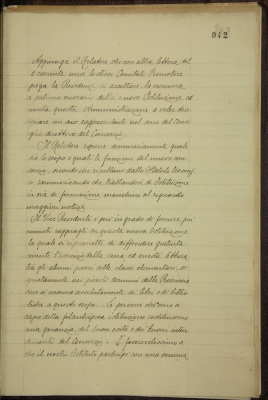 942
Aggiunge il Relatore che con altra lettera del
2 corrente mese lo stesso Comitato Promotore
prega la Presidenza di accettare la nomina
a patrono onorario della nuova Istituzione, ed
invita questa Amministrazione a voler desi-
gnare un suo rappresentante nel seno del Consi-
glio direttivo del Consorzio.
Il Relatore espone sommariamente quale
sia lo scopo e quali le funzioni del nuovo con-
sorzio, secondo che risultano dallo Statuto
comunicando che trattandosi di Istituzione
in via di formazione mancano al riguardo
maggiori notizie.
Il Vice Presidente è però in grado di fornire più
minuti ragguagli su questa nuova Istituzione
la quale si ripromette di diffondere gratuita-
mente l'esercizio della sana ed onesta lettura
fra gli alunni poveri delle classi elementari, se-
gnatamente nei piccoli comuni della Provincia
ove si manca assolutamente di libri e di biblio-
teche a questo scopo. Le persone che sono a
capo della filantropica istituzione costituiscono
una garanzia del buon esito e dei buoni inten-
dimenti del Consorzio. È favorevolissimo a
che il nostro Istituto partecipi con una somma